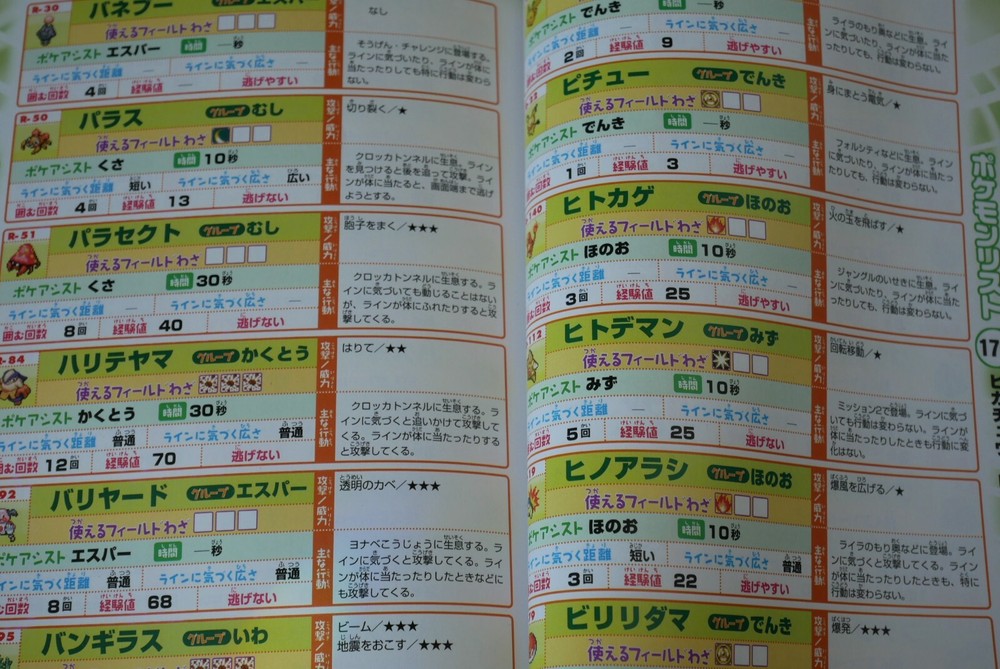 R-30
バネブー グループ エスパー
使えるフィールドわざ
ポケアシスト エスパー 時間 ―秒
ラインに気づく距離 ― ラインに気づく広さ ―
囲む回数 4回 経験値 ― 逃げやすい
なし
主な行動
そうげん・チャレンジに登場する。
ラインに気づいたり、ラインが体に
当たったりしても特に行動は変わらない。
R-50
パラス グループ むし
使えるフィールドわざ
ポケアシスト くさ 時間 10秒
ラインに気づく距離 短い ラインに気づく広さ 広い
囲む回数 4回 経験値 13 逃げない
攻撃/威力
切り裂く/★
主な行動
クロッカトンネルに生息。ライン
を見つけると後を追って攻撃。ライ
ンが体に当たると、画面端まで逃げ
ようとする。
R-51
パラセクト グループ むし
使えるフィールドわざ
ポケアシスト くさ 時間 30秒
ラインに気づく距離 ― ラインに気づく広さ ―
囲む回数 8回 経験値 40 逃げない
攻撃/威力
胞子をまく/★★★
主な行動
クロッカトンネルに生息する。ラ
インに気づいても動じることはない
が、ラインが体にふれたりすると攻
撃してくる。
R-84
ハリテヤマ グループ かくとう
使えるフィールドわざ
ポケアシスト かくとう 時間 30秒
ラインに気づく距離 普通 ラインに気づく広さ 普通
囲む回数 12回 経験値 70 逃げない
攻撃/威力
はりて/★★
主な行動
クロッカトンネルに生息する。ラ
インに気づくと追いかけて攻撃して
くる。ラインが体に当たったりする
と攻撃してくる。
92
バリヤード グループ エスパー
使えるフィールドわざ
ポケアシスト エスパー 時間 ―秒
ラインに気づく距離 普通 ラインに気づく広さ 普通
囲む回数 8回 経験値 68 逃げない
攻撃/威力
透明のカベ/★★★
主な行動
ヨナベこうじょうに生息する。ラ
インに気づくと攻撃してくる。ライ
ンが体に当たったりしたときなどに
も攻撃してくる。
95
バンギラス グループ いわ
使えるフィールドわざ
攻撃/威力
ビーム/★★★
地震をおこす/★★★
ポケアシスト でんき ―秒
ラインに気づく距離 ― ラインに気づく広さ ―
囲む回数 2回 経験値 9 逃げやすい
主な行動
ライラのもり奥などに生息。ライ
ンに気づいたり、ラインが体に当た
ったりしても、行動は変わらない。
ピチュー グループ でんき
使えるフィールドわざ
ポケアシスト でんき 時間 ―秒
ラインに気づく距離 ― ラインに気づく広さ ―
囲む回数 1回 経験値 3 逃げやすい
攻撃/威力
身にまとう電気/★
主な行動
フォルシティなどに生息。ライン
に気づいたり、ラインが体に当たっ
たりしても、行動は変わらない。
140
ヒトカゲ グループ ほのお
使えるフィールドわざ
ポケアシスト ほのお 時間 10秒
ラインに気づく距離 ― ラインに気づく広さ ―
囲む回数 3回 経験値 25 逃げやすい
攻撃/威力
火の玉を飛ばす/★
主な行動
ジャングルのいせきに生息。ライ
ンに気づいたり、ラインが体に当た
ったりしても、行動は変わらない。
112
ヒトデマン グループ みず
使えるフィールドわざ
ポケアシスト みず 時間 10秒
ラインに気づく距離 ― ラインに気づく広さ ―
囲む回数 5回 経験値 25 逃げやすい
攻撃/威力
回転移動/★
主な行動
ミッション2で登場。ラインに気づ
いても行動は変わらない。ラインが
体に当たったりしたときも行動に変
化はない。
19
ヒノアラシ グループ ほのお
使えるフィールドわざ
ポケアシスト ほのお 時間 10秒
ラインに気づく距離 短い ラインに気づく広さ 普通
囲む回数 3回 経験値 22 逃げやすい
攻撃/威力
爆風を広げる/★
主な行動
ライラのもり奥などに登場。ライ
ンに気づくと攻撃してくる。ライン
が体に当たったりしたときも、特に
行動は変わらない。
79
ビリリダマ グループ でんき
使えるフィールドわざ
攻撃/威力
爆発/★★★
ポケモンリスト
17